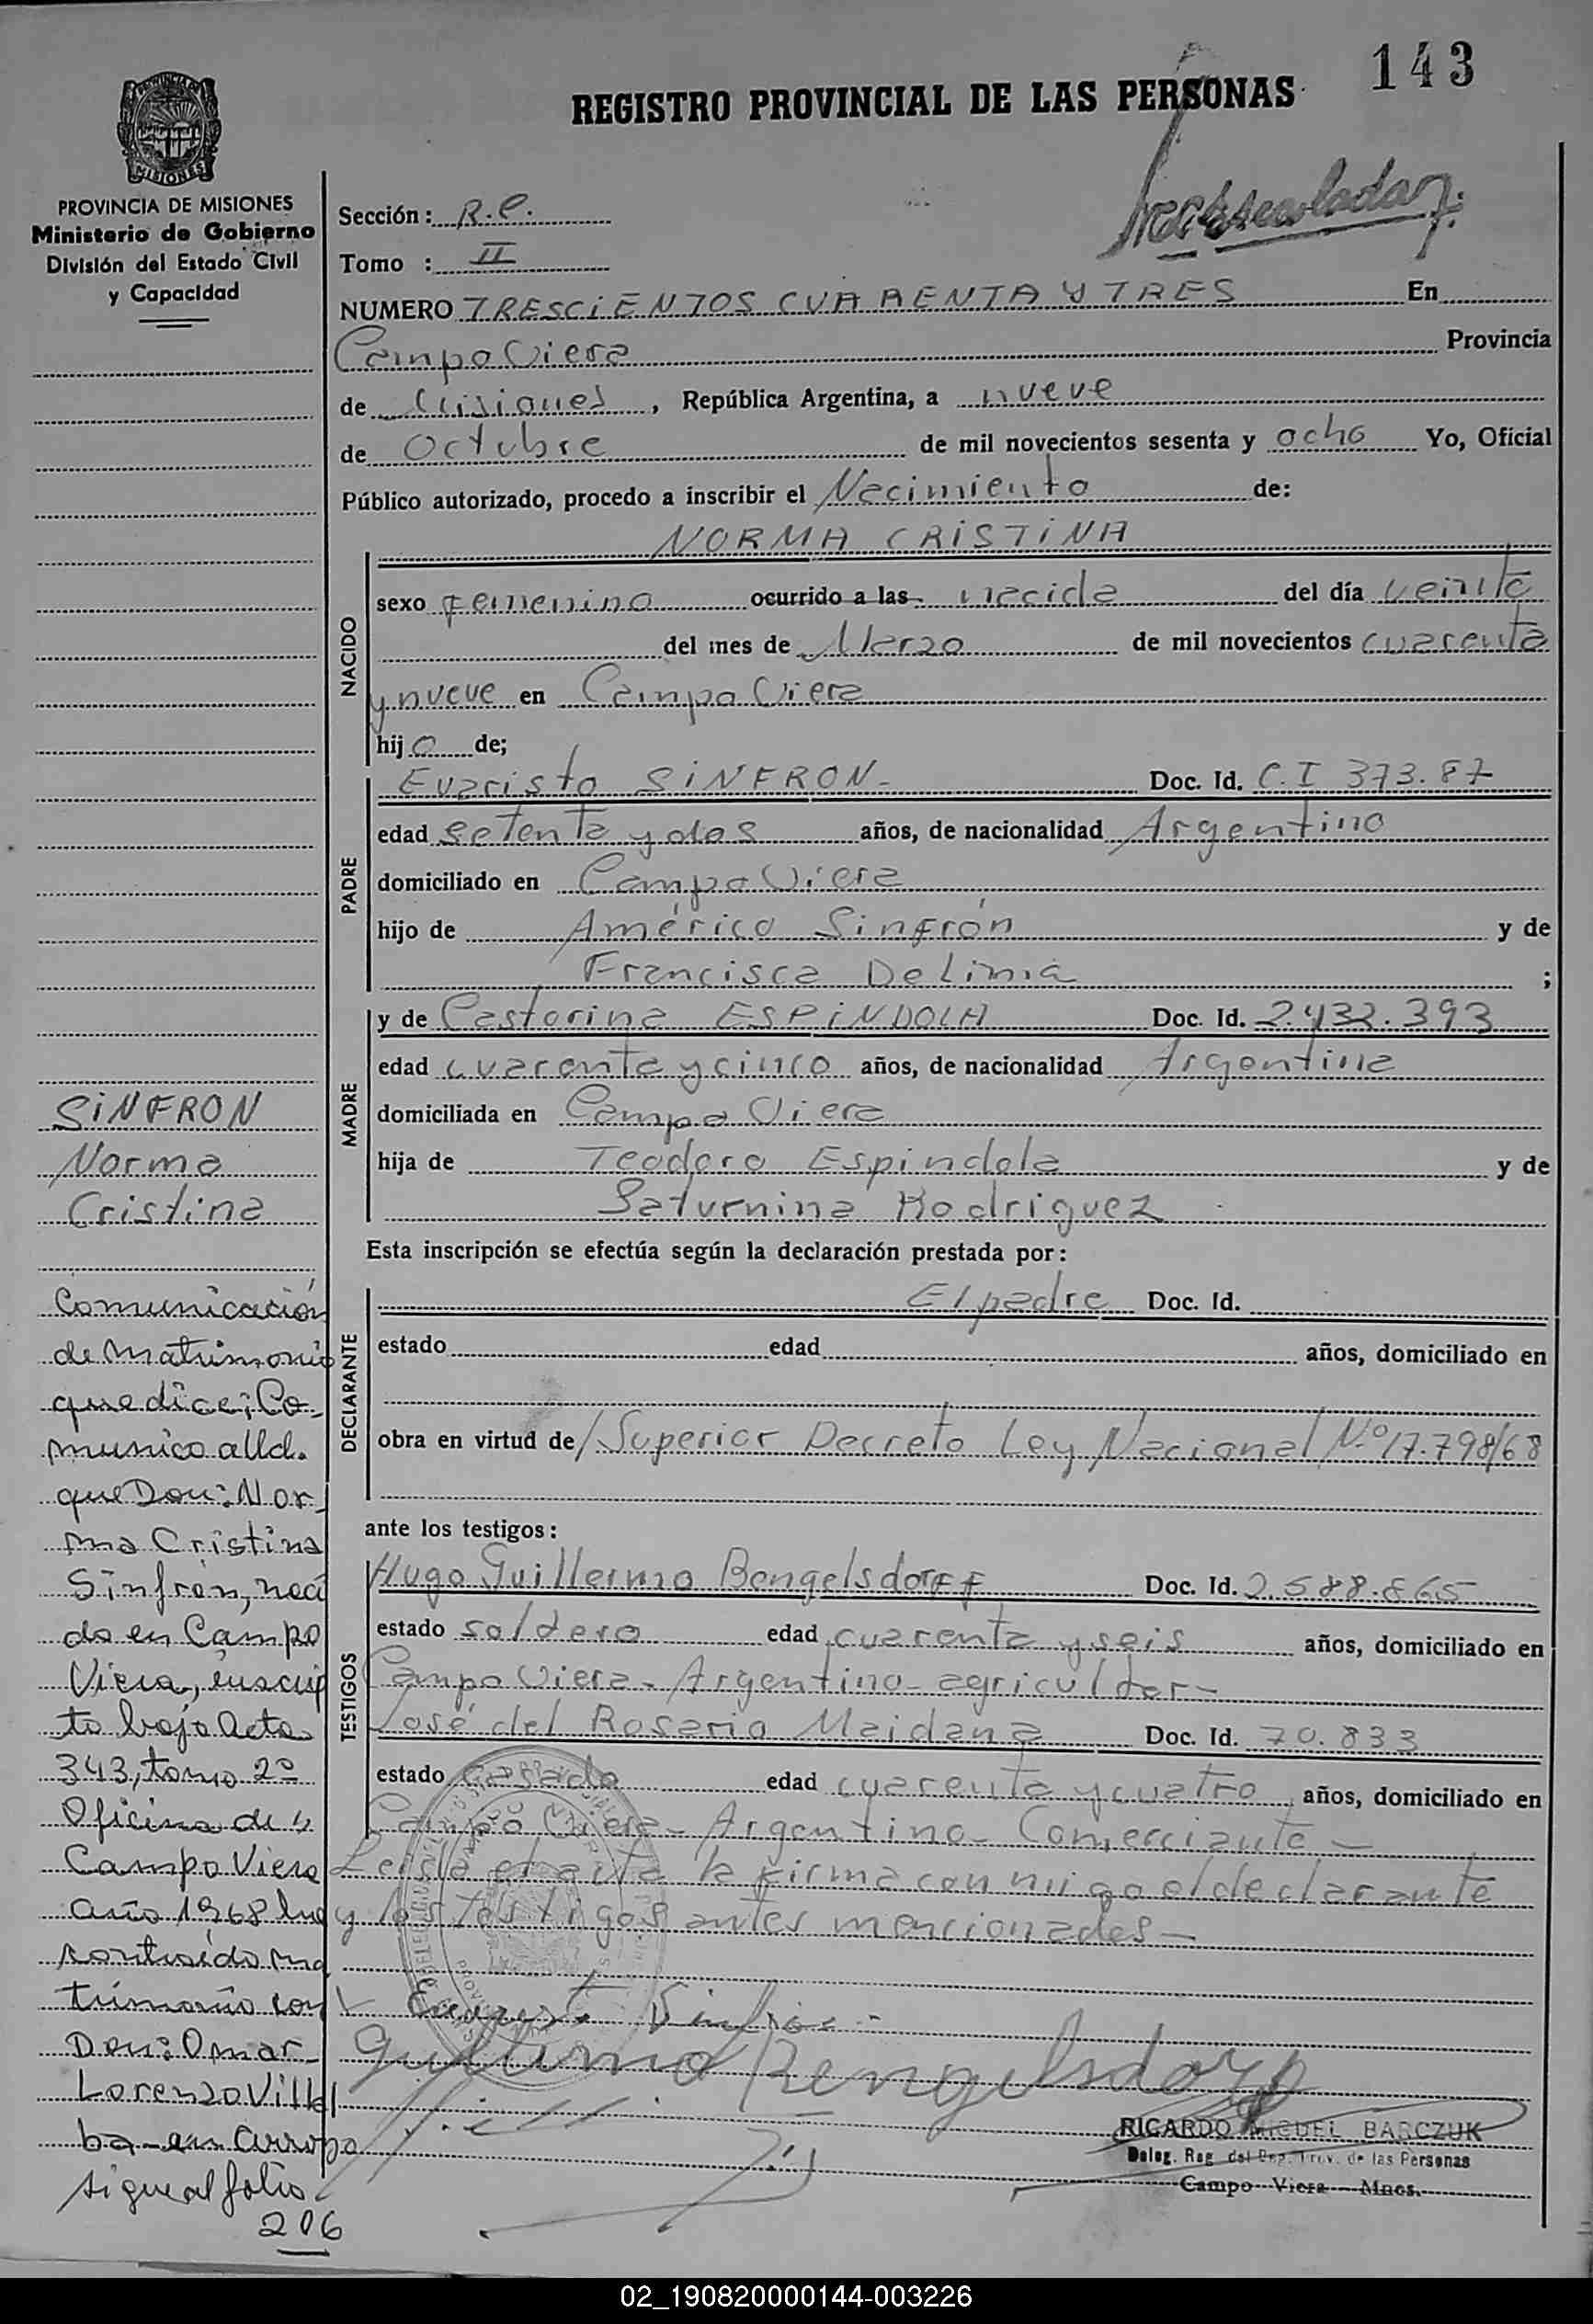 143
REGISTRO PROVINCIAL DE LAS PERSONAS
PROVINCIA DE MISIONES
Ministerio de Gobierno
División del Estado Civil
y Capacidad
Sección: R.C.
Tomo : II
NUMERO TRESCIENTOS CUARENTA Y TRES En
Campo Viera Provincia
de Misiones, República Argentina, a nueve
de Octubre de mil novecientos sesenta y ocho Yo, Oficial
Público autorizado, procedo a inscribir el Nacimiento de:
NORMA CRISTINA
NACIDO
sexo Femenino ocurrido a las nacida del día veinte
del mes de Marzo de mil novecientos cuarenta
y nueve en Campo Viera
hijo de;
PADRE
Evaristo SINFRON- Doc. Id. C.I 373.87
edad setenta y dos años, de nacionalidad Argentino
domiciliado en Campo Viera
hijo de Américo Sinfrón y de
Francisca De Lima ;
MADRE
y de Castorina ESPINDOLA Doc. Id. 2.432.393
edad cuarenta y cinco años, de nacionalidad Argentina
domiciliada en Campo Viera
hija de Teodoro Espindola y de
Saturnina Rodriguez
Esta inscripción se efectúa según la declaración prestada por:
DECLARANTE
El padre Doc. Id.
estado edad años, domiciliado en
obra en virtud de /Superior Decreto Ley Nacional N.º 17.798/68
ante los testigos:
TESTIGOS
Hugo Guillermo Bengelsdorff Doc. Id. 2.588.865
estado soldero edad cuarenta y seis años, domiciliado en
Campo Viera- Argentino- agricultor-
José del Rosario Maidana Doc. Id. 70.833
estado Casado edad cuarenta y cuatro años, domiciliado en
Campo Viera- Argentino- Comerciante-
Leida el acta la firma con migo el declarante
y los testigos antes mencionades-
Guillermo Bengelsdorf
RICARDO MIGUEL BARCZUK
Deleg. Reg. del Reg. Prov. de las Personas
Campo Viera - Mnes.
SINFRON
Norma
Cristina
Comunicación
de matrimonio
que dice; Co-
munico a Ud.
que Don: Nor-
ma Cristina
Sinfrón, naci
do en Campo
Viera, inscrip
to bajo Acta
343, tomo 2º
Oficina de
Campo Viera
año 1968 ha
contraído ma
trimonio con
Don: Omar
Lorenzo Villal
ba - en Arroyo
sigue al folio
206
02_190820000144-003226